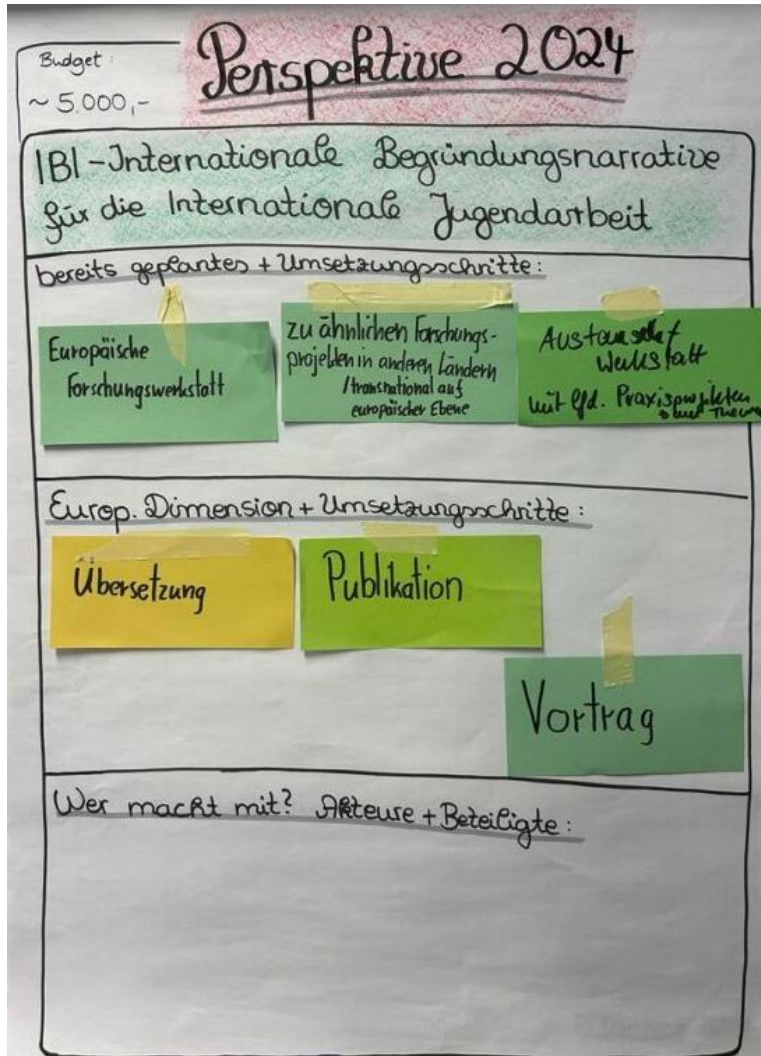 Budget:
~ 5.000,-
Perspektive 2024
IBI-Internationale Begründungsnarrative
für die Internationale Jugendarbeit
bereits geplantes + Umsetzungsschritte:
Europäische
Forschungswerkstatt
zu ähnlichen Forschungs-
projekten in anderen Ländern
/transnational auf
europäischer Ebene
Werkstatt
mit lfd. Praxisprojekten
Europ. Dimension + Umsetzungsschritte:
Übersetzung
Publikation
Vortrag
Wer macht mit? Akteure + Beteiligte: